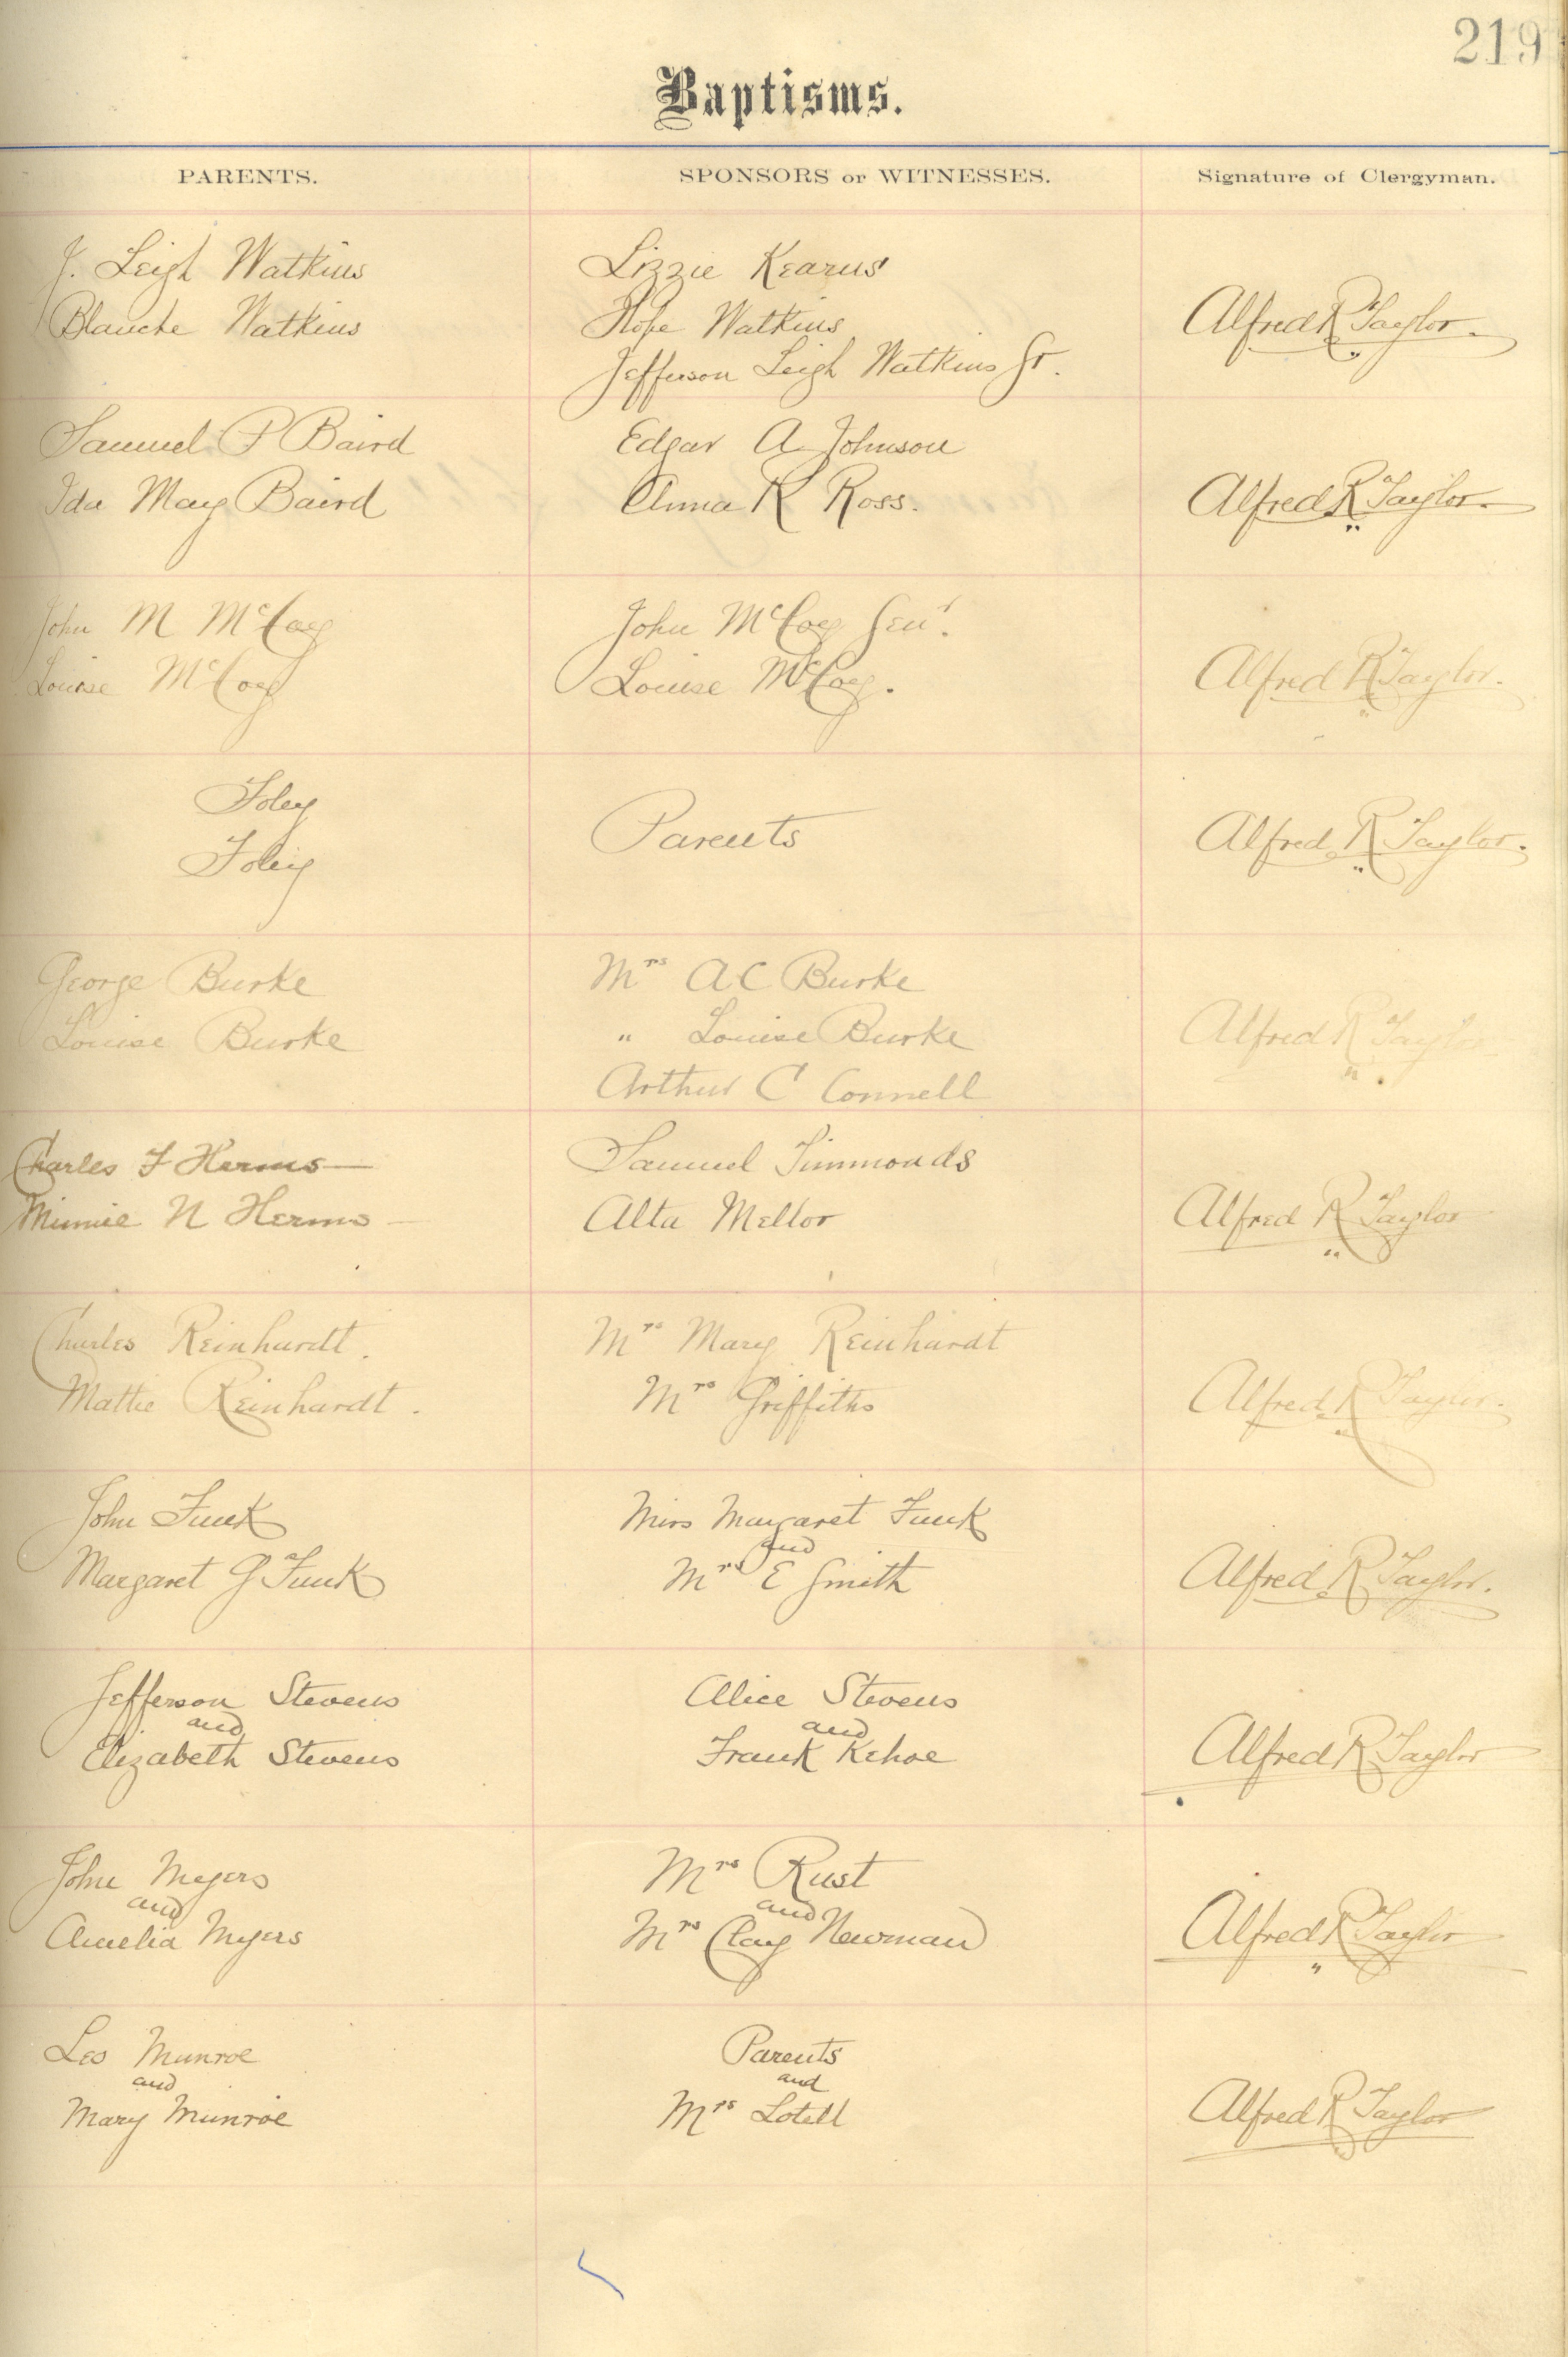 219
Baptisms.
PARENTS.
SPONSORS or WITNESSES.
Signature of Clergyman.
J. Leigh Watkins
Blanche Watkins
Lizzie Kearns
Hope Watkins
Jefferson Leigh Watkins Sr.
Alfred R Taylor.
Samuel P Baird
Ida May Baird
Edgar A Johnson
Anna R Ross.
Alfred R Taylor.
John M McCoy
Louise McCoy
John McCoy Sen'.
Louise McCoy.
Alfred R Taylor.
Foley
Foley
Parents
Alfred R Taylor.
George Burke
Louise Burke
Mrs A C Burke
" Louise Burke
Arthur C Connell
Alfred R Taylor
Charles F Herms
Minnie N Herms
Samuel Simmonds
Alta Mellor
Alfred R Taylor
Charles Reinhardt.
Mattie Reinhardt.
Mrs Mary Reinhardt
Mrs Griffiths
Alfred R Taylor.
John Funk
Margaret G Funk
Miss Margaret Funk
and
Mrs E Smith
Alfred R Taylor.
Jefferson Stevens
and
Elizabeth Stevens
Alice Stevens
and
Frank Kehoe
Alfred R Taylor
John Meyers
and
Amelia Myers
Mrs Rust
and
Mrs Clay Newman
Alfred R Taylor
Leo Munroe
and
Mary Munroe
Parents
and
Mrs Lotell
Alfred R Taylor